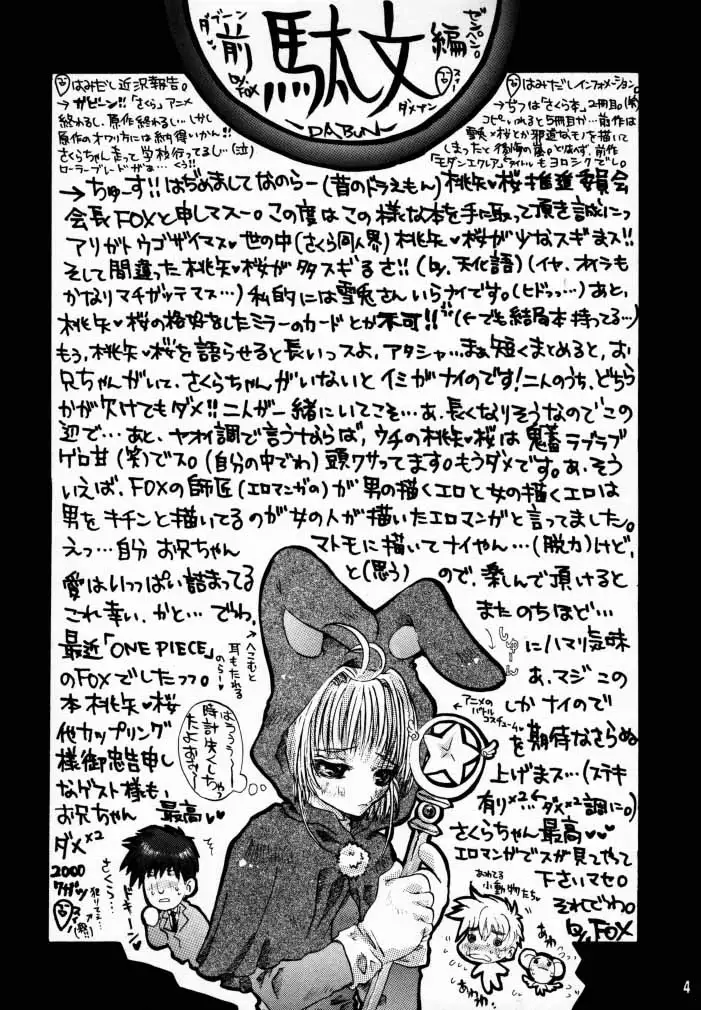 ダブーン
ゼンペン。
前 駄文 編
by. FOX
ダメナン
~DABUN~
はみだし近況報告。
→ガビーン!!「さくら」アニメ
終わるし、原作終わるし…しかし
原作のオワリ方には納得いかん!!
さくらちゃん走って学校行ってるし…(泣)
ローラーブレードがぁ…くぅ!!
はみだしインフォメーション。
「さくら本」2冊目。(笑)
コピー入れると5冊目か…前作は
雪兎×桜とか邪道なモノを描いて
しまったと後悔の嵐。とは言わず、前作
「モダンエクレア」もヨロシクでし。
→ちゅーす!!はぢめましてなのらー(昔のドラえもん)桃矢♥桜推進委員会
会長FOXと申しマスー。この度はこの様な本を手に取って頂き誠にっ
アリガトウゴザイマス♥世の中(さくら同人界)桃矢♥桜が少なスギまス!!
そして間違った桃矢♥桜が多スギるさ!!(by.天化語)(イヤ、オイラも
かなりマチガッテマス…)私的には雪兎さんいらナイです。(ヒドゥっ…)あと、
桃矢♥桜の格好をしたミラーのカードとか不可!!(←でも結局本持ってる…)
もう、桃矢♥桜を語らせると長いっスよ、アタシャ…まぁ短くまとめると、お
兄ちゃんがいて、さくらちゃんがいないとイミがナイのです!二人のうち、どちら
かが欠けてもダメ!!二人が一緒にいてこそ…あ、長くなりそうなのでこの
辺で…あと、ヤオイ調で言うならば、ウチの桃矢♥桜は鬼畜ラブラブ
ゲロ甘(笑)でス。(自分の中でわ)頭クサってます。もうダメです。あ、そう
いえば、FOXの師匠(エロマンガの)が男の描くエロと女の描くエロは
男をキチンと描いてるのが女の人が描いたエロマンガと言ってました。
えっ…自分 お兄ちゃん マトモに描いてナイやん…(脱力)けど、
愛はいっぱい詰まってる と(思う) ので、楽しんで頂けると
これ幸い、かと…でわ、 またのちほど…
最近「ONE PIECE」 にハマリ気味
のFOXでしたっっ。 あ、マジこの
本桃矢♥桜 しかナイので
他カップリング を期待なさらぬ
様御忠告申し 上げまス…(ステキ
なゲスト様も、 有り×2←ダメ×2調に。)
お兄ちゃん 最高♥ さくらちゃん最高♥♥
ダメ×2 エロマンガでスが見てやって
2000 下さいマセ。
7ガツ それでわ。
by FOX
→へこむと
耳もたれる
のらー
しゅーん
←アニメの
バトル
コスチューム♥
はうぅぅ〜
時計失くしちゃっ
たよぉぉ〜
さくら…
ドキーン
あわてる
小動物たち
あわわ
4